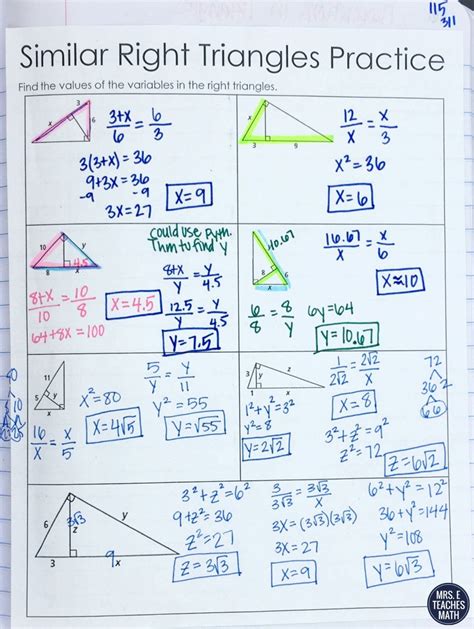 115
311
Similar Right Triangles Practice
Find the values of the variables in the right triangles.
3
x
6
3+x/6 = 6/3
3(3+x) = 36
9+3x = 36
-9 -9
3x = 27
x = 9
x
3
9
12/x = x/3
x² = 36
x = 6
10
y
8
x
4.5
could use Pyth.
Thm to find y
8+x/10 = 10/8
64+8x = 100
x = 4.5
8+x/y = y/4.5
12.5/y = y/4.5
y = 7.5
10.67
8
6
x
16.67/x = x/6
x ≈ 10
6/8 = 8/y
6y = 64
y = 10.67
11
5
y
x
x² = 80
16/x = x/5
x = 4√5
5/y = y/11
y² = 55
y = √55
3
y
z
1
x
1/2√2 = 2√2/x
x = 8
1² + y² = 3²
y² = 8
y = 2√2
3² + z² = 9²
z² = 72
z = 6√2
72
36 2
6 6
6
3√3
z
y
3
9
x
3² + z² = 6²
9 + z² = 36
z² = 27
z = 3√3
3/3√3 = 3√3/x
3x = (3√3)(3√3)
3x = 27
x = 9
6² + y² = 12²
36 + y² = 144
y² = 108
y = 6√3
MRS. E
TEACHES
MATH